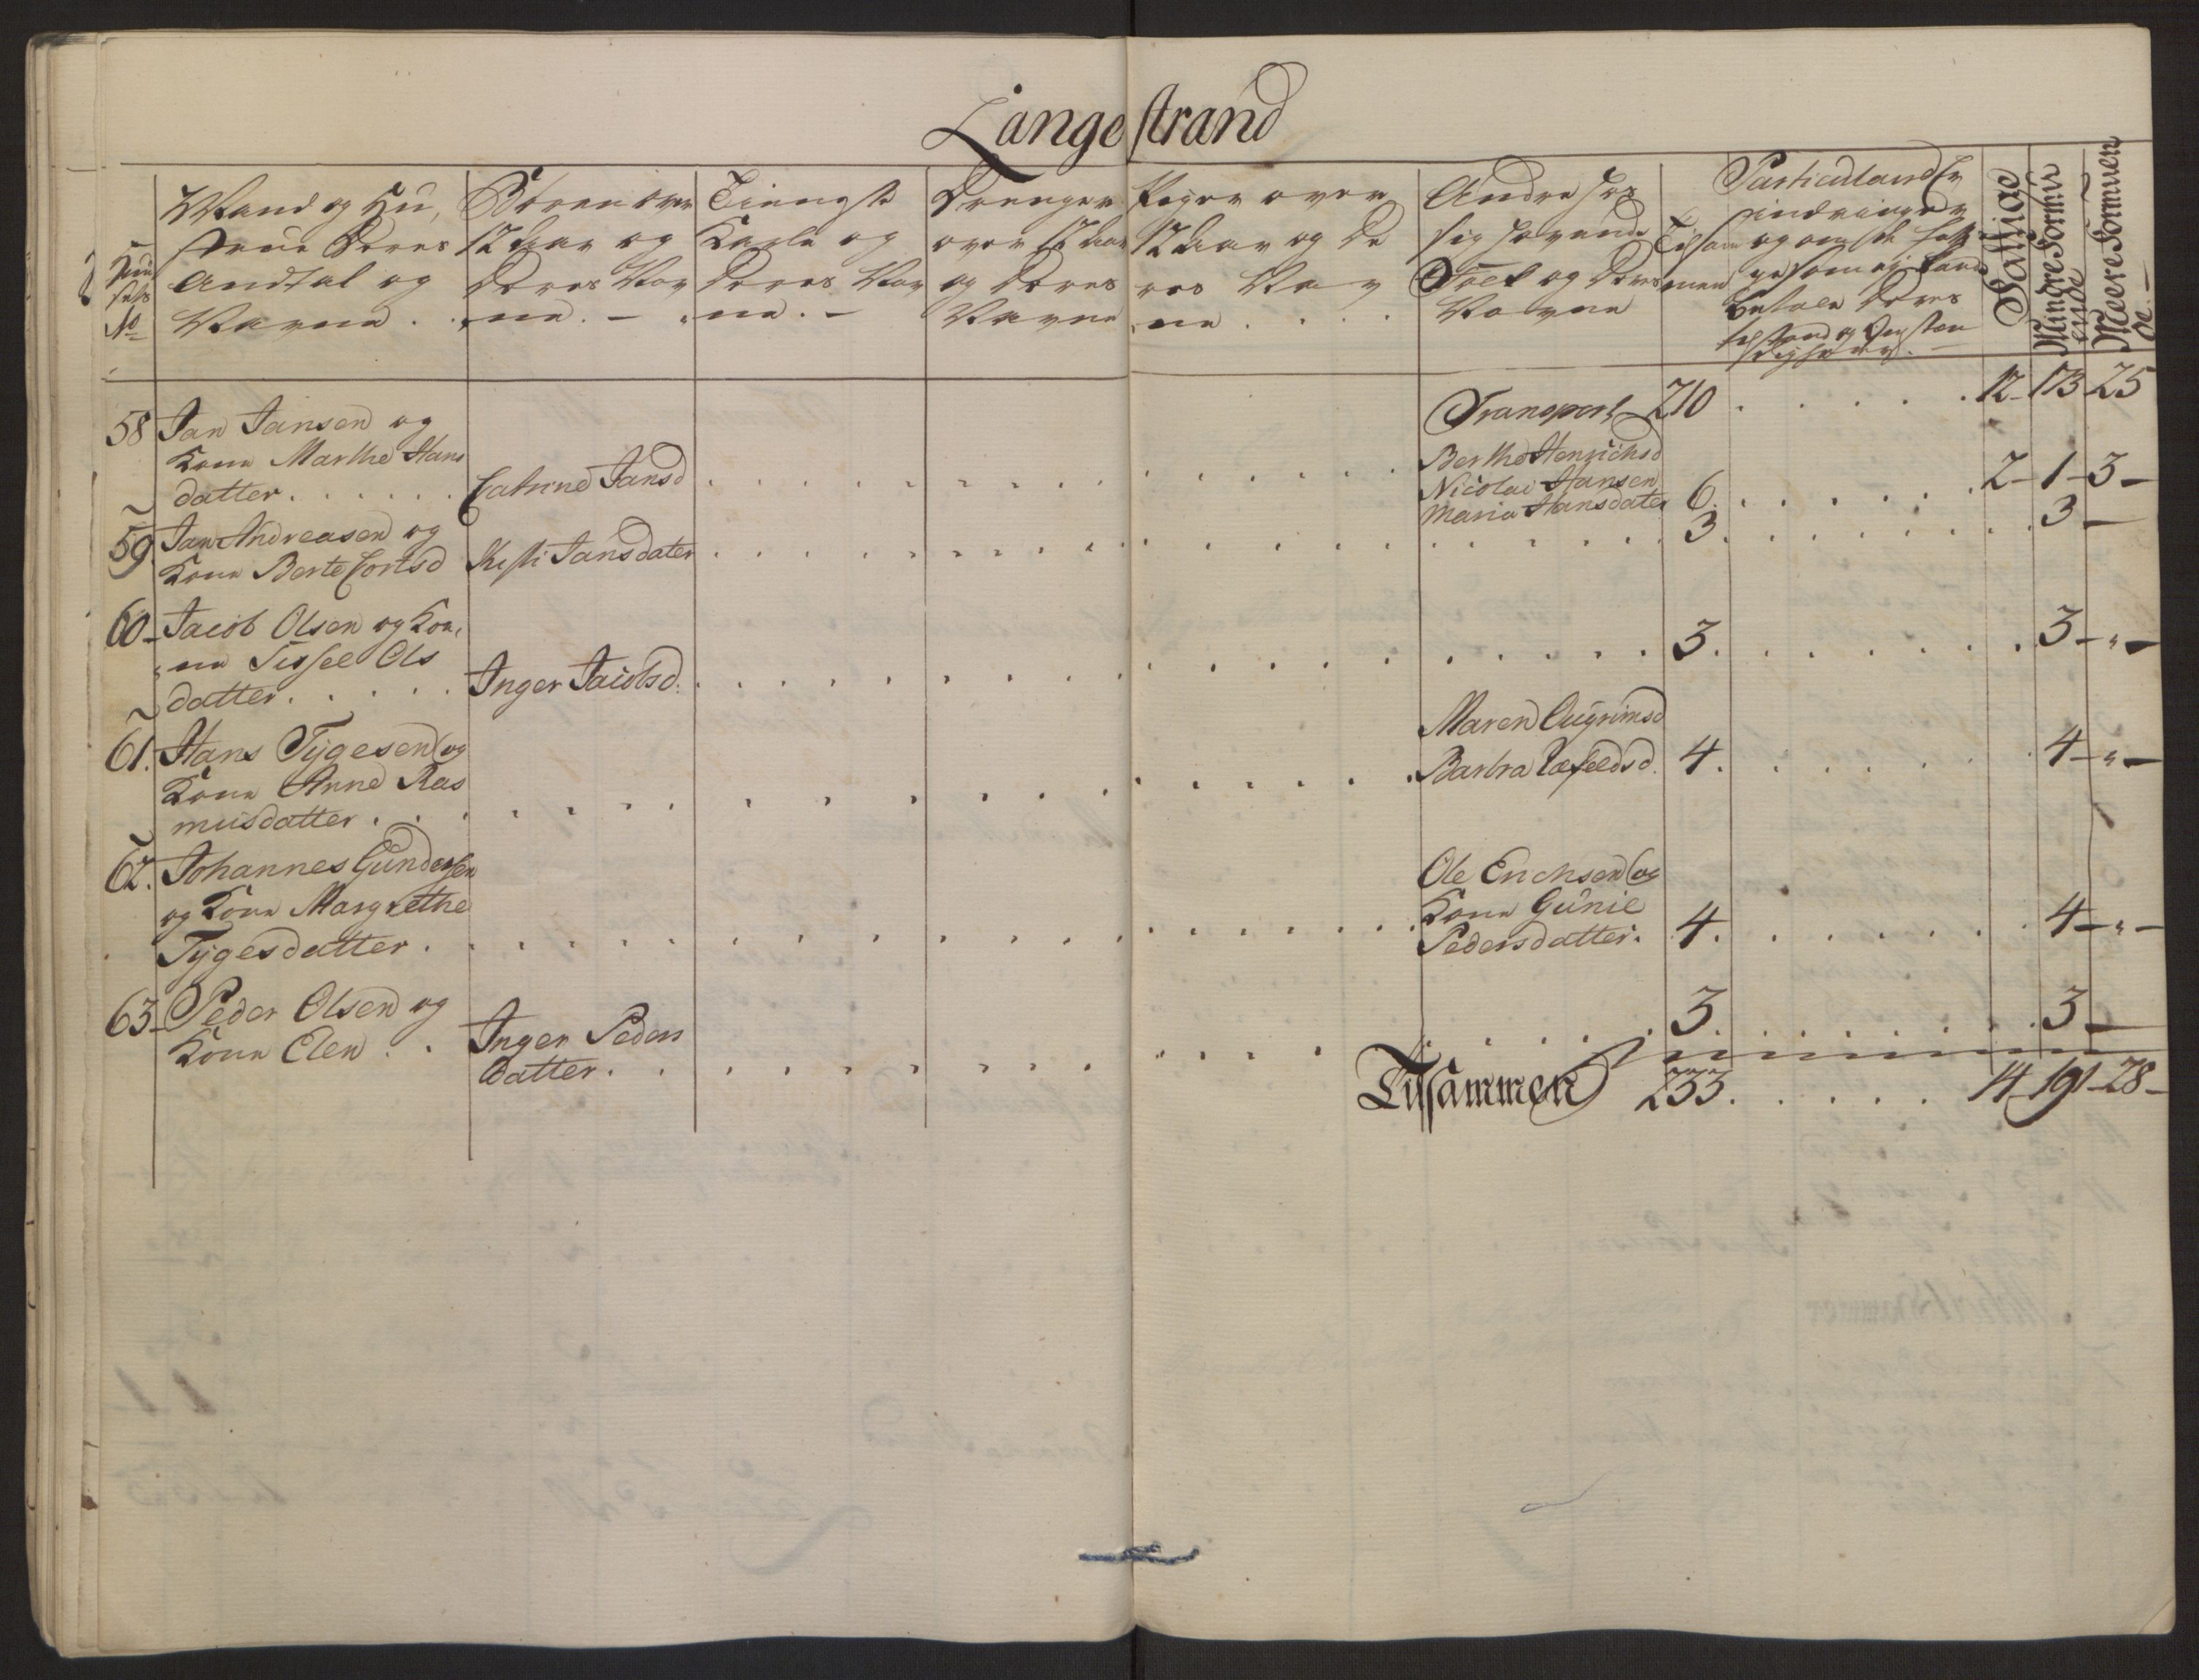 Langestrand
Huusets No
Mand og Hu,
strue Deres
Andtal og
Navne .
Børn over
12 Aar og
Deres Nav
ne. -
Tieneste
Karle og
Deres Nav
ne. -
Drenger
over 12 Aar
og Deres
Navne
Piger over
12 Aar og De
res Nav
ne . . .
Andre hos
sig havende
Folck og Deres
Navne
Tilsam
men
Particulaire Er
indringer
og om de fatti
ge som ej kand
betale Deres
tilstand og Omstæn
digheder. -
Fattige
Mindre Formu
ende
Meere Formuen
de. -
Transport 210 . . . . . 12 - 173 25
58 Jan Jansen og
Kone Marthe Hans
datter . . . . . . Catrine Jansd . . . .
Berthe Henrichsd
Nicolai Hansen
Maria Hansdater 6 . . . . . 2 - 1 - 3 -
59. Jan Andreasen og
Kone Berte Cortsd Kisti Jansdater . . . . 3. . . . . 3 -
60 - Jacob Olsen og Ko,
ne Sissel Ols
datter . . . . . Inger Jacobsd: . . . . 3. . . . . 3 - " -
61. Hans Tygesen og
Kone Anne Ras
musdatter . . .
Maren
Barbra 4. . . . . 4 - " -
62. Johannes Gundersen
og Kone Margrethe
Tygesdatter . . . .
Ole Erichsen og
Kone Gunie
Pedersdatter. 4. . . . . 4 - " -
63 - Peder Olsen og
Kone Elen . .
Inger Peders
datter . . . . 3. . . . . 3 -
Tilsammen 233. . . . . 14 191 - 28 -